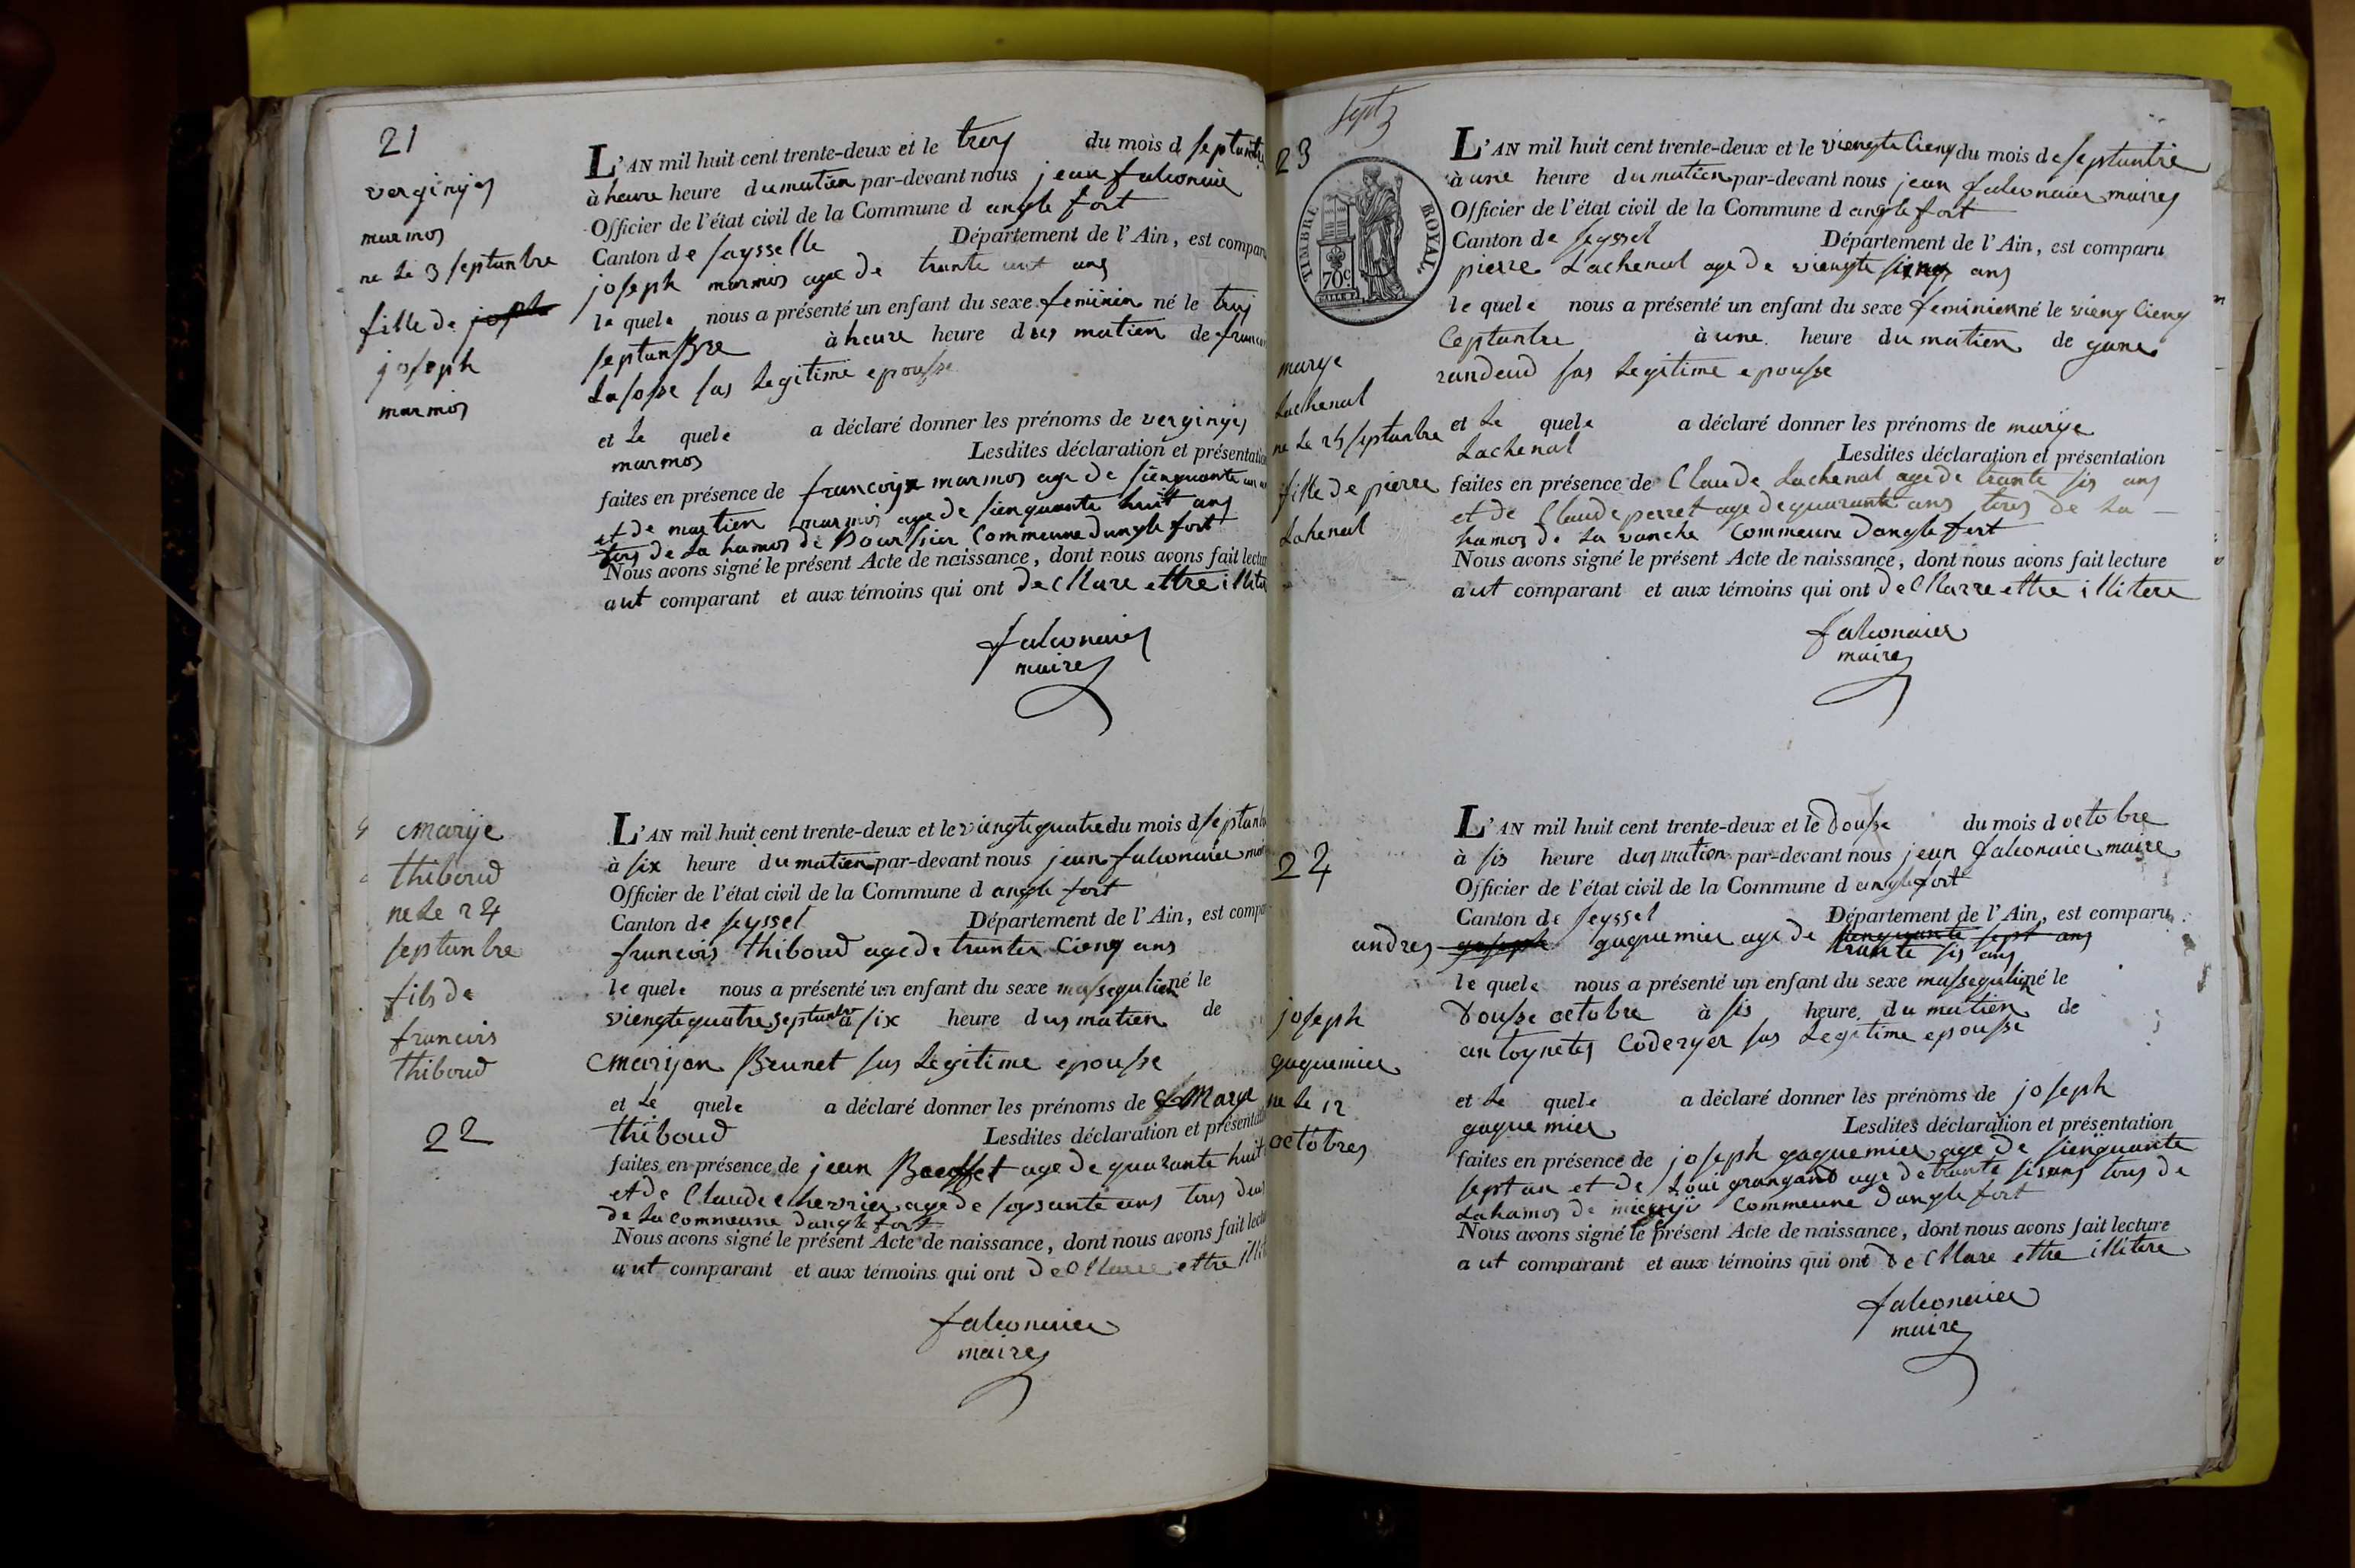 21
verginyes
marmos
ne le 3 septanbre
fille de joseph
joseph
marmos
L'AN mil huit cent trente-deux et le troy du mois d septanbre
à heure heure du matien par-devant nous jean falconnier
Officier de l'état civil de la Commune d angle fort
Canton de saysselle Département de l'Ain, est comparu
joseph marmos age de trante ans
le quele nous a présenté un enfant du sexe feminin né le troy
septanbre à heure heure dus matien de
sas legitime epousse
et le quele a déclaré donner les prénoms de verginyes
marmos Lesdites déclaration et présentation
faites en présence de francoys marmos age de sienquante
et de martien marmos age de sienquante huit ans
tous de la hamos de Boursier Commeune dangle fort
Nous avons signé le présent Acte de naissance, dont nous avons fait lecture
aut comparant et aux témoins qui ont decllare ettre illitere
falconnier
maire
marije
thiboud
ne le 24
septanbre
fils de
francois
thiboud
22
L'AN mil huit cent trente-deux et le viengte quatre du mois d septanbre
à six heure du matien par-devant nous jean falconnier
Officier de l'état civil de la Commune d angle fort
Canton de seyssel Département de l'Ain, est comparu
francois thiboud age de trante cienq ans
le quele nous a présenté un enfant du sexe massequlien né le
viengte quatre septanbre à six heure dus matien de
marijon Brunet sas legitime epousse
et le quele a déclaré donner les prénoms de Marye
thiboud Lesdites déclaration et présentation
faites en présence de jean age de quarante huit
et de Claude chevrier age de soysante ans tous deus
de la commeune dangle fort
Nous avons signé le présent Acte de naissance, dont nous avons fait lecture
aut comparant et aux témoins qui ont decllare ettre
falconnier
maire
sept
23
TIMBRE ROYAL
70 c
marye
Lachenal
ne le 25 septanbre
fille de pierre
Lahenal
L'AN mil huit cent trente-deux et le viengte cienq du mois de septanbre
à une heure du matien par-devant nous jean falconnier maire
Officier de l'état civil de la Commune d angle fort
Canton de seyssel Département de l'Ain, est comparu
pierre Lachenal age de viengte ans
le quele nous a présenté un enfant du sexe feminien né le vieng cienq
ceptanbre à une heure du matien de
sas legitime epousse
et le quele a déclaré donner les prénoms de marye
Lachenal Lesdites déclaration et présentation
faites en présence de Claude Lachenal age de trante sis ans
et de Claude perret age de quarante ans tous de la
hamos de la vanche Commeune dangle fort
Nous avons signé le présent Acte de naissance, dont nous avons fait lecture
aut comparant et aux témoins qui ont decllarre ettre illitere
falconnier
maire
24
joseph
gaquemier
ne le 12
octobres
L'AN mil huit cent trente-deux et le dousse du mois d octobre
à sis heure dus matien par-devant nous jean falconnier maire
Officier de l'état civil de la Commune d angle fort
Canton de seyssel Département de l'Ain, est comparu
andres joseph gaquemier age de sienquante sept ans
trante sis ans
le quele nous a présenté un enfant du sexe massequlien né le
dousse octobre à sis heure du matien de
antoynetes coderyer sas legitime epousse
et le quele a déclaré donner les prénoms de joseph
gaquemier Lesdites déclaration et présentation
faites en présence de joseph gaquemier age de sienquante
sept an et de Loui grangand age de trante sis ans tous de
la hamos de Commeune dangle fort
Nous avons signé le présent Acte de naissance, dont nous avons fait lecture
aut comparant et aux témoins qui ont decllare ettre illitere
falconnier
maire